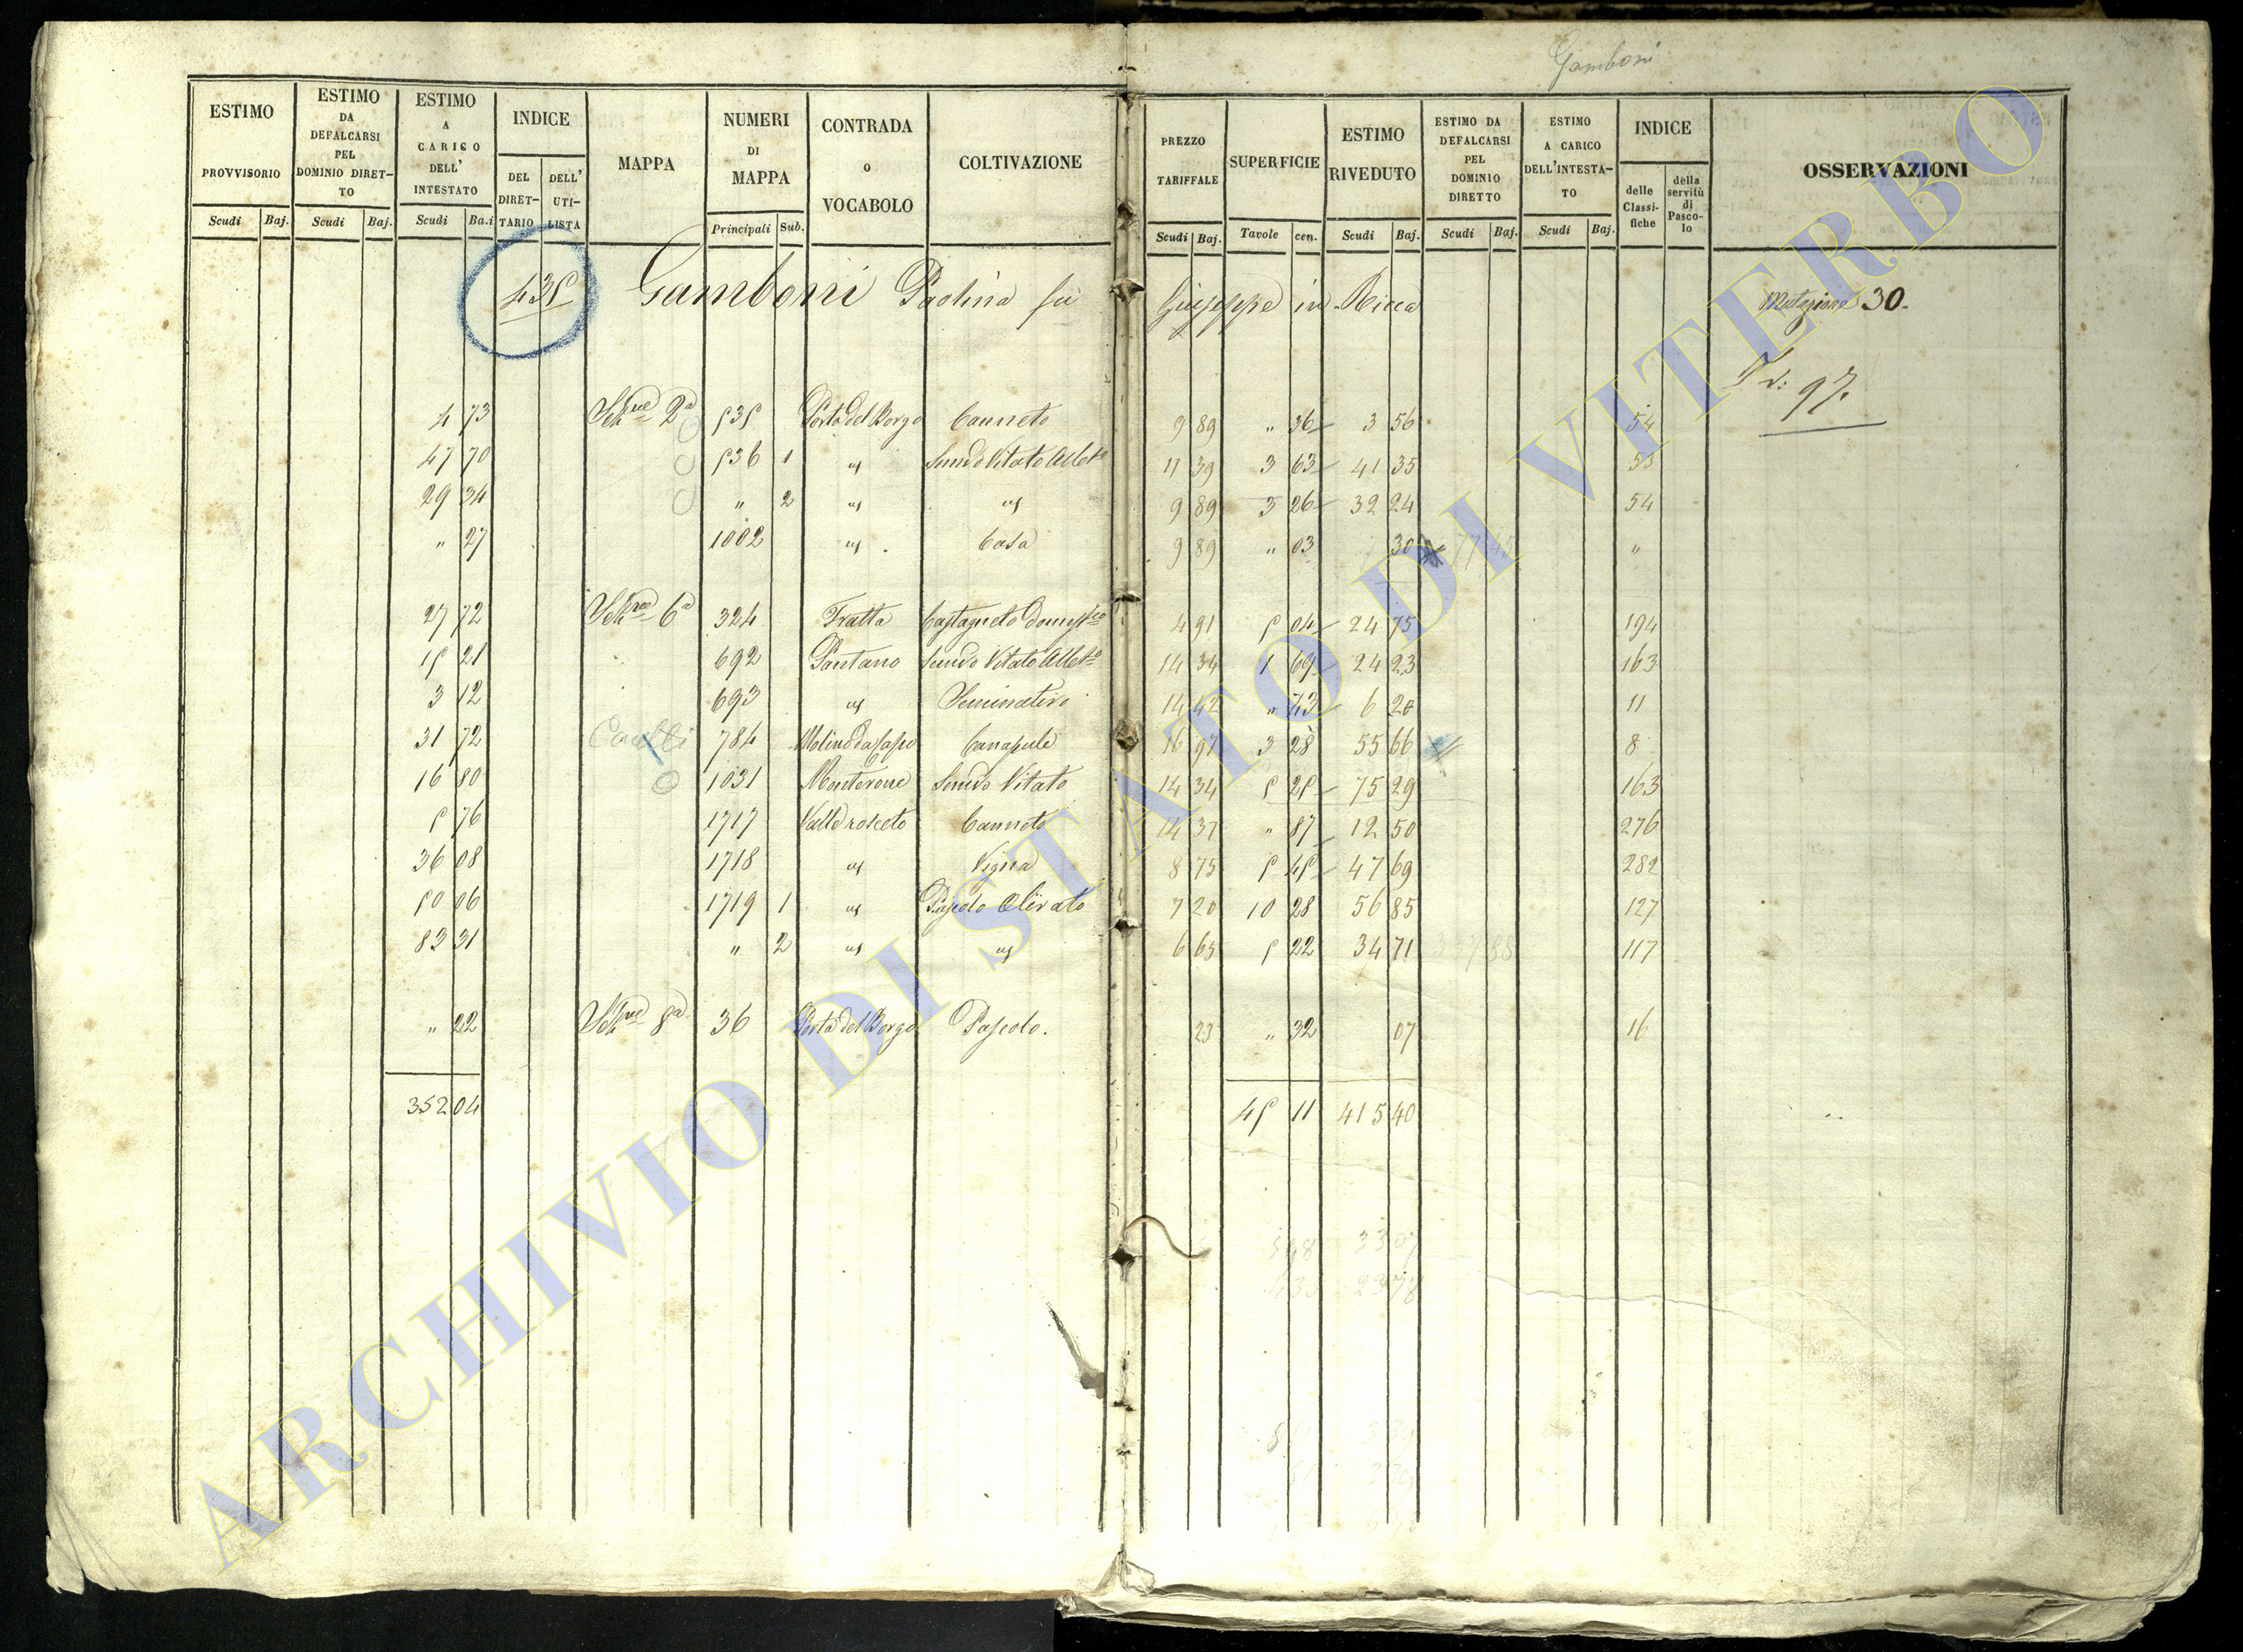 Gamboni
ESTIMO PROVVISORIO Scudi Baj.
ESTIMO DA DEFALCARSI PEL DOMINIO DIRET-TO Scudi Baj.
ESTIMO A CARICO DELL' INTESTATO Scudi Ba.i
INDICE DEL DIRET-TARIO DELL' UTI-LISTA
MAPPA
NUMERI DI MAPPA Principali Sub.
CONTRADA o VOCABOLO
COLTIVAZIONE
PREZZO TARIFFALE Scudi Baj.
SUPERFICIE Tavole cen.
ESTIMO RIVEDUTO Scudi Baj.
ESTIMO DA DEFALCARSI PEL DOMINIO DIRETTO Scudi Baj.
ESTIMO A CARICO DELL'INTESTA-TO Scudi Baj.
INDICE delle Classi-fiche della servitù di Pasco-lo
OSSERVAZIONI
435 Gamboni Paolina fu Giuseppe in Ricca Mutazione 30.
97.
4 73 Sezne 2a 535 Porta del Borgo Canneto 9 89 " 36 3 56 54
47 70 536 1 " Semivo Vitato Albto 11 39 3 63 41 35 53
29 34 " 2 " " 9 89 3 26 32 24 54
" 27 1002 " Casa 9 89 " 03 30 "
27 72 Sezne 6a 324 Fratta Castagneto domestco 4 91 5 04 24 75 194
15 21 692 Pantano Semivo Vitato Albto 14 34 1 69 24 23 163
3 12 693 " Seminativo 14 42 " 43 6 20 11
31 72 784 Molino da Capo Canapule 16 97 3 28 55 66 8
16 80 1031 Monterone Semivo Vitato 14 34 5 25 75 29 163
5 76 1717 Valle rosceto Canneto 14 37 " 87 12 50 276
36 08 1718 " Vigna 8 75 5 45 47 69 282
50 06 1719 1 " Pascolo Olivato 7 20 10 28 56 85 127
83 31 " 2 " " 6 65 5 22 34 71 117
" 22 Sezne 8a 36 Porta del Borgo Pascolo. 23 " 32 07 16
352 04 45 11 415 40
ARCHIVIO DI STATO DI VITERBO